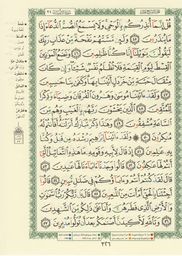 قُلْ إِنَّمَا أُنذِرُكُم بِالْوَحْيِ وَلَا يَسْمَعُ الصُّمُّ الدُّعَاءَ إِذَا مَا
يُنذَرُونَ ٤٥ وَلَئِن مَّسَّتْهُمْ نَفْحَةٌ مِّنْ عَذَابِ رَبِّكَ
لَيَقُولُنَّ يَٰوَيْلَنَا إِنَّا كُنَّا ظَٰلِمِينَ ٤٦ وَنَضَعُ الْمَوَٰزِينَ
الْقِسْطَ لِيَوْمِ الْقِيَٰمَةِ فَلَا تُظْلَمُ نَفْسٌ شَيْئًا وَإِن كَانَ
مِثْقَالَ حَبَّةٍ مِّنْ خَرْدَلٍ أَتَيْنَا بِهَا وَكَفَىٰ بِنَا حَٰسِبِينَ
٤٧ وَلَقَدْ ءَاتَيْنَا مُوسَىٰ وَهَٰرُونَ الْفُرْقَانَ وَضِيَاءً وَذِكْرًا
لِّلْمُتَّقِينَ ٤٨ الَّذِينَ يَخْشَوْنَ رَبَّهُم بِالْغَيْبِ وَهُم مِّنَ
السَّاعَةِ مُشْفِقُونَ ٤٩ وَهَٰذَا ذِكْرٌ مُّبَارَكٌ أَنزَلْنَٰهُ أَفَأَنتُمْ لَهُ
مُنكِرُونَ ٥٠ وَلَقَدْ ءَاتَيْنَا إِبْرَٰهِيمَ رُشْدَهُ مِن قَبْلُ وَكُنَّا
بِهِ عَٰلِمِينَ ٥١ إِذْ قَالَ لِأَبِيهِ وَقَوْمِهِ مَا هَٰذِهِ التَّمَاثِيلُ الَّتِي
أَنتُمْ لَهَا عَٰكِفُونَ ٥٢ قَالُوا وَجَدْنَا ءَابَاءَنَا لَهَا عَٰبِدِينَ ٥٣
قَالَ لَقَدْ كُنتُمْ أَنتُمْ وَءَابَاؤُكُمْ فِي ضَلَٰلٍ مُّبِينٍ ٥٤ قَالُوا
أَجِئْتَنَا بِالْحَقِّ أَمْ أَنتَ مِنَ اللَّٰعِبِينَ ٥٥ قَالَ بَل رَّبُّكُمْ رَبُّ السَّمَٰوَٰتِ
وَالْأَرْضِ الَّذِي فَطَرَهُنَّ وَأَنَا عَلَىٰ ذَٰلِكُم مِّنَ الشَّٰهِدِينَ
٥٦ وَتَاللَّهِ لَأَكِيدَنَّ أَصْنَٰمَكُم بَعْدَ أَن تُوَلُّوا مُدْبِرِينَ ٥٧
٣٢٦